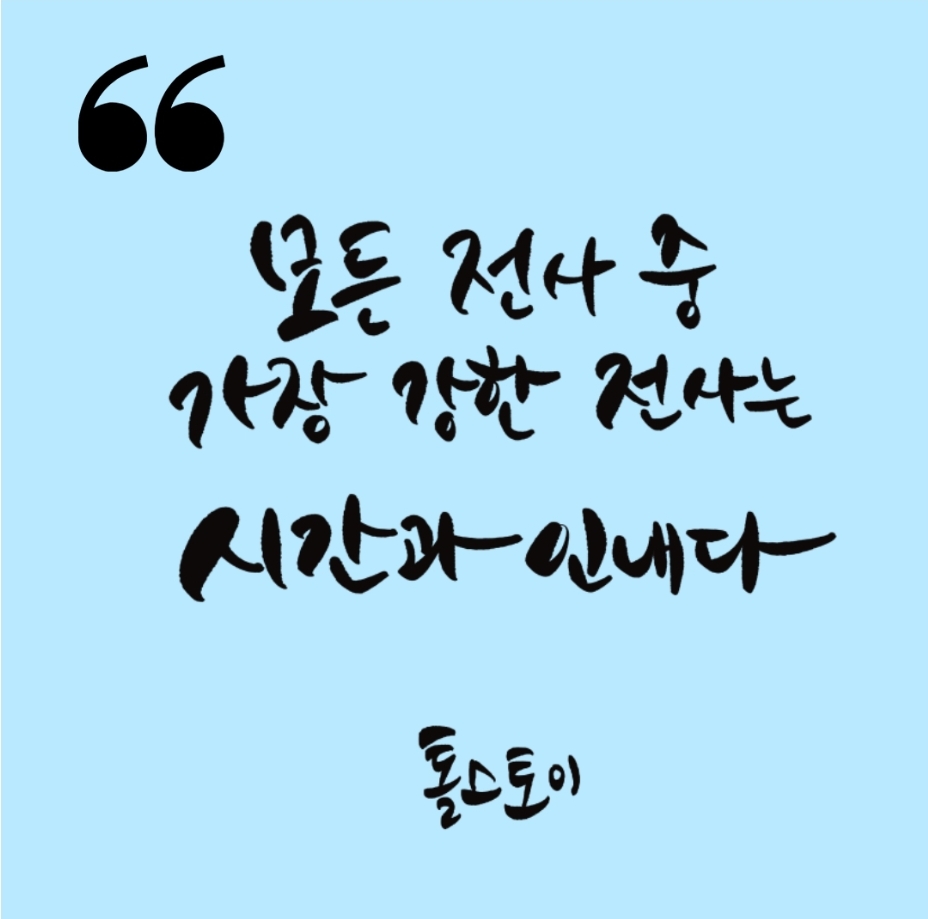 “
모든 전사 중
가장 강한 전사는
시간과 인내다
톨스토이